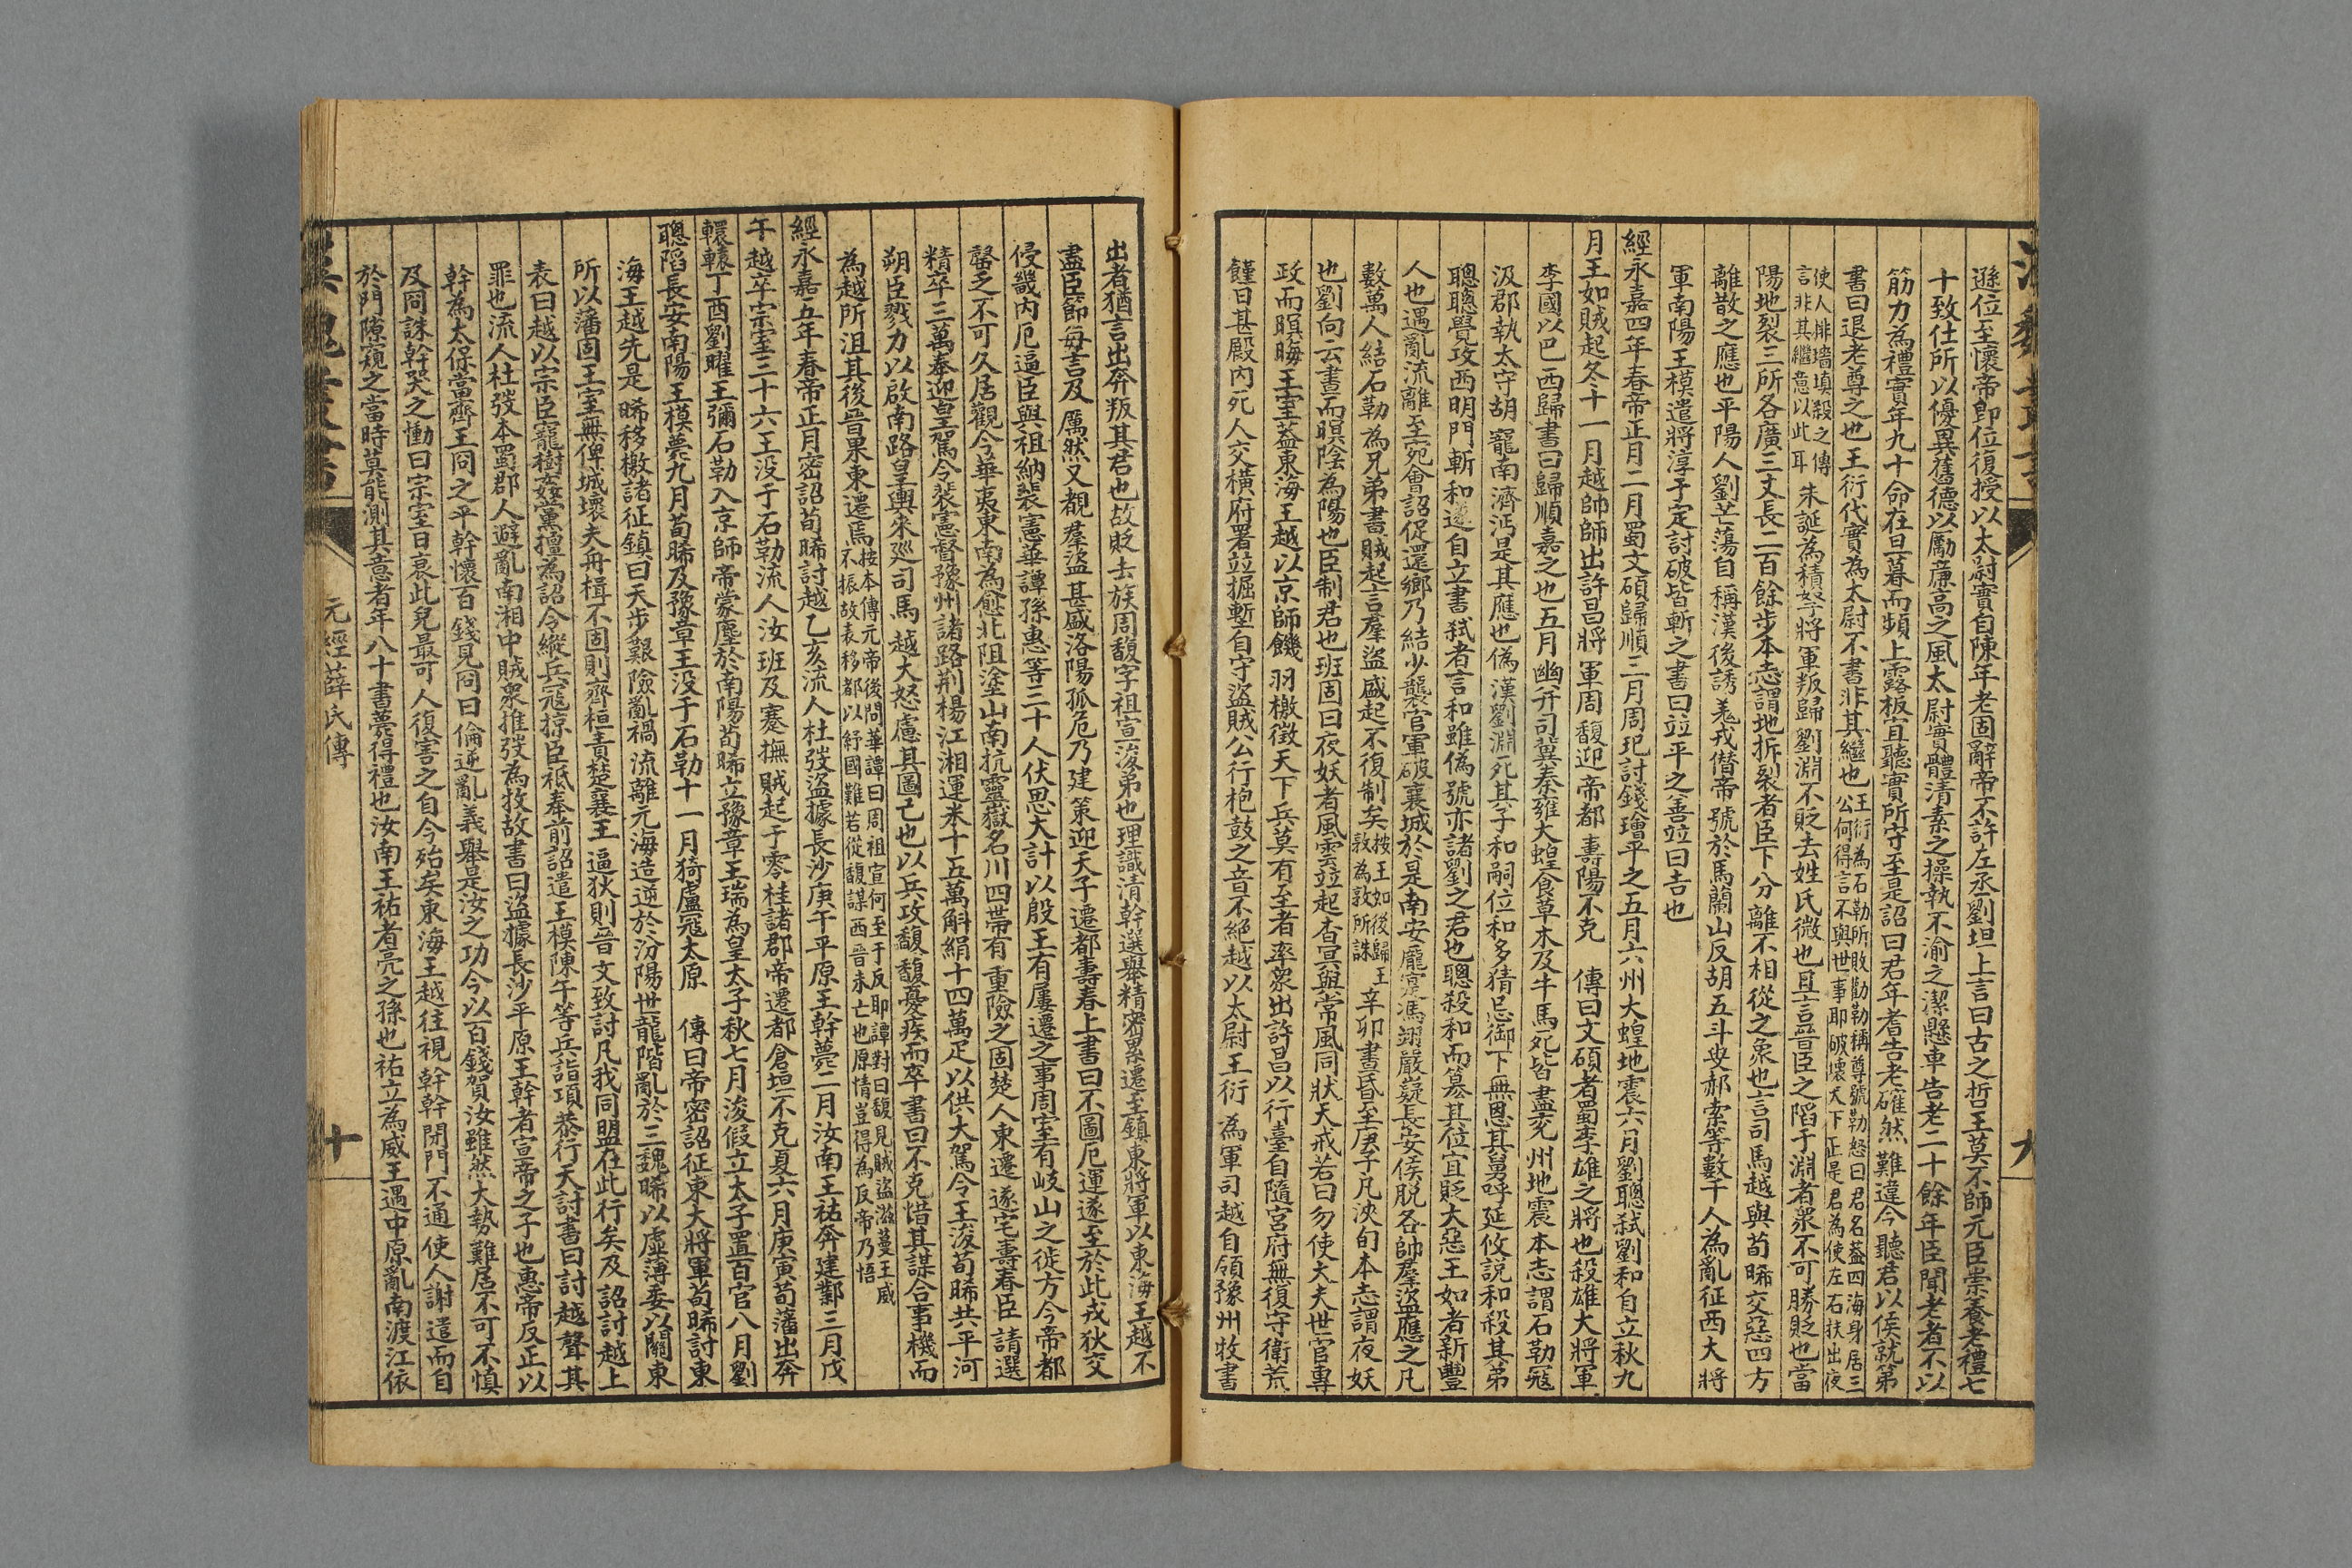 遜位至懷帝卽位復授以太尉實自陳年老固辭帝不許左丞劉坦上言曰古之哲王莫不師元臣崇養老禮七
十致仕所以優異舊德以勵廉高之風太尉實體清素之操執不渝之潔懸車告老二十餘年臣聞老者不以
筋力為禮實年九十命在旦暮而頻上露板宜聽實所守至是詔曰君年耆告老確然難違今聽君以侯就第
書曰退老尊之也王衍代實為太尉不書非其繼也王衍為石勒所敗勸勒稱尊號勒怒曰君名蓋四海身居三
公何得言不與世事耶破壞天下正是君為使左右扶出夜
使人排墻填殺之傳
言非其繼意以此耳
朱誕為積弩將軍叛歸劉淵不貶去姓氏微也且言晉臣之陷于淵者衆不可勝貶也當
陽地裂三所各廣三丈長二百餘步本志謂地拆裂者臣下分離不相從之象也言司馬越與荀晞交惡四方
離散之應也平陽人劉芒蕩自稱漢後誘羗戎僣帝號於馬蘭山反胡五斗叟郝索等數千人為亂征西大將
軍南陽王模遣將淳于定討破皆斬之書曰竝平之善竝曰吉也
經永嘉四年春帝正月二月蜀文碩歸順三月周玘討錢璯平之五月六州大蝗地震六月劉聰弒劉和自立秋九
月王如賊起冬十一月越帥師出許昌將軍周馥迎帝都壽陽不克 傳曰文碩者蜀李雄之將也殺雄大將軍
李國以巴西歸書曰歸順嘉之也五月幽并司冀秦雍大蝗食草木及牛馬死皆盡兖州地震本志謂石勒寇
汲郡執太守胡寵南濟沔是其應也偽漢劉淵死其子和嗣位和多猜忌御下無恩其舅呼延攸說和殺其弟
聰聰覺攻西明門斬和遂自立書弒者言和雖偽號亦諸劉之君也聰殺和而簒其位宜貶大惡王如者新豐
人也遇亂流離至宛會詔促還鄉乃結少襲官軍破襄城於是南安龐寔馮翊嚴嶷長安侯脫各帥羣盜應之凡
數萬人結石勒為兄弟書賊起言羣盜盛起不復制矣按王如後歸王
敦為敦所誅
辛卯晝昏至庚子凡浹旬本志謂夜妖
也劉向云晝而暝陰為陽也臣制君也班固曰夜妖者風雲竝起杳冥與常風同狀天戒若曰勿使大夫世官專
政而暝晦王室葢東海王越以京師饑羽檄徵天下兵莫有至者率衆出許昌以行臺自隨宮府無復守衛荒
饉日甚殿內死人交橫府署竝掘塹自守盜賊公行枹鼓之音不絕越以太尉王衍為軍司越自領豫州牧書
出者猶言出奔叛其君也故貶去族周馥字祖宣浚弟也理識清幹選舉精密累遷至鎮東將軍以東海王越不
盡臣節每言及厲然又覩羣盜甚盛洛陽孤危乃建策迎天子遷都壽春上書曰不圖厄運遂至於此戎狄交
侵畿內厄逼臣與祖納裴憲華譚孫惠等三十人伏思大計以殷王有屢遷之事周室有岐山之徙方今帝都
罄乏不可久居觀今華夷東南為愈北阻塗山南抗靈嶽名川四帶有重險之固楚人東遷遂宅壽春臣請選
精卒三萬奉迎皇駕令裴憲督豫州諸路荆楊江湘運米十五萬斛絹十四萬疋以供大駕令王浚荀晞共平河
朔臣戮力以啟南路皇輿來廵司馬越大怒慮其圖己也以兵攻馥馥憂疾而卒書曰不克惜其謀合事機而
為越所沮其後晉果東遷焉按本傳元帝後問華譚曰周祖宣何至于反耶譚對曰馥見賊盜滋蔓王威
不振故表移都以紓國難若從馥謀西晉未亡也原情豈得為反帝乃悟
經永嘉五年春帝正月密詔荀晞討越乙亥流人杜弢盜據長沙庚午平原王幹薨二月汝南王祐奔建鄴三月戊
午越卒宗室三十六王没于石勒流人汝班及蹇撫賊起于零桂諸郡帝遷都倉垣不克夏六月庚寅荀藩出奔
轘轅丁酉劉曜王彌石勒入京師帝蒙塵於南陽荀晞立豫章王瑞為皇太子秋七月浚假立太子置百官八月劉
聰䧟長安南陽王模薨九月荀晞及豫章王没于石勒十一月猗盧寇太原 傳曰帝密詔征東大將軍荀晞討東
海王越先是晞移檄諸征鎮曰天步艱險亂禍流離元海造逆於汾陽世龍階亂於三魏晞以虛薄委以關東
所以藩固王室無俾城壞夫舟楫不固則齊桓責楚襄王逼狄則晉文致討凡我同盟在此行矣及詔討越上
表曰越以宗臣寵樹姦黨擅為詔令縱兵寇掠臣祗奉前詔遣王模陳午等兵詣項恭行天討書曰討越聲其
罪也流人杜弢本蜀郡人避亂南湘中賊衆推弢為牧故書曰盜據長沙平原王幹者宣帝之子也惠帝反正以
幹為太保當齊王冏之平幹懷百錢見冏曰倫逆亂義舉是汝之功今以百錢賀汝雖然大勢難居不可不慎
及冏誅幹哭之慟曰宗室日衰此兒最可人復害之自今殆矣東海王越往視幹幹閉門不通使人謝遣而自
於門隙窺之當時莫能測其意者年八十書薨得禮也汝南王祐者亮之孫也祐立為威王遇中原亂南渡江依
元經薛氏傳
十